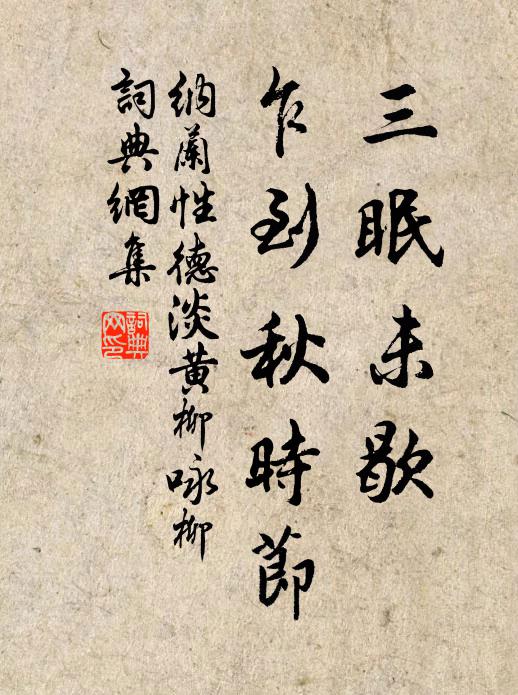 三眠未歇
乍到秋時節
納蘭性德淡黃柳咏柳
詞典網集
詞典網印